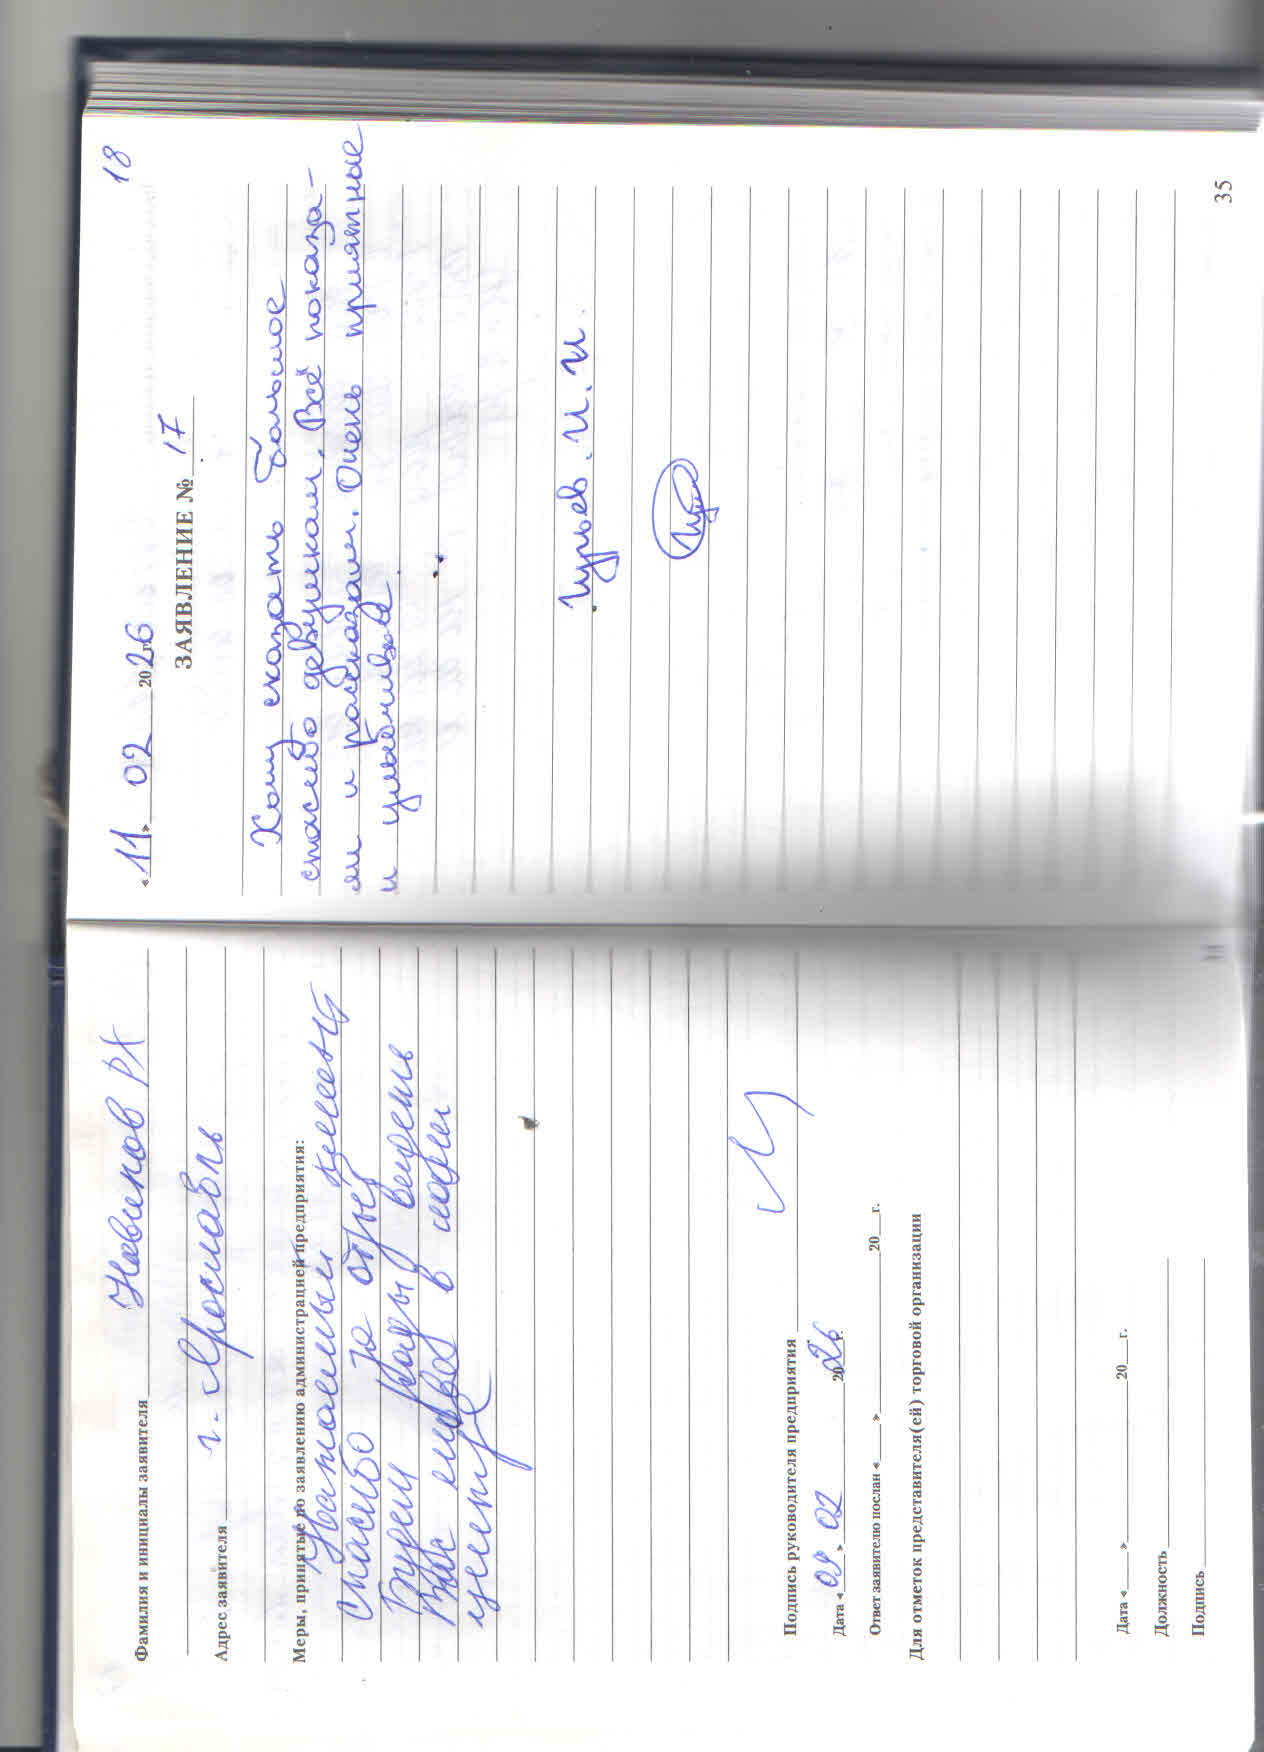 Фамилия и инициалы заявителя Новиков РХ
Адрес заявителя г. Ярославль
Меры, принятые по заявлению администрацией предприятия:
Уважаемый клиент
спасибо за отзыв
Будем рады видеть
Вас снова в нашем
центре
Подпись руководителя предприятия
Дата «09» 02 2026г.
Ответ заявителю послан «___»___20__г.
Для отметок представителя(ей) торговой организации
Дата «___»___20__г.
Должность
Подпись
18
«11» 02 2026г.
ЗАЯВЛЕНИЕ № 17
Хочу сказать большое
спасибо девушкам. Всё показа-
ли и рассказали. Очень приятные
и улыбчивые.
Гурьев. И. И.
35